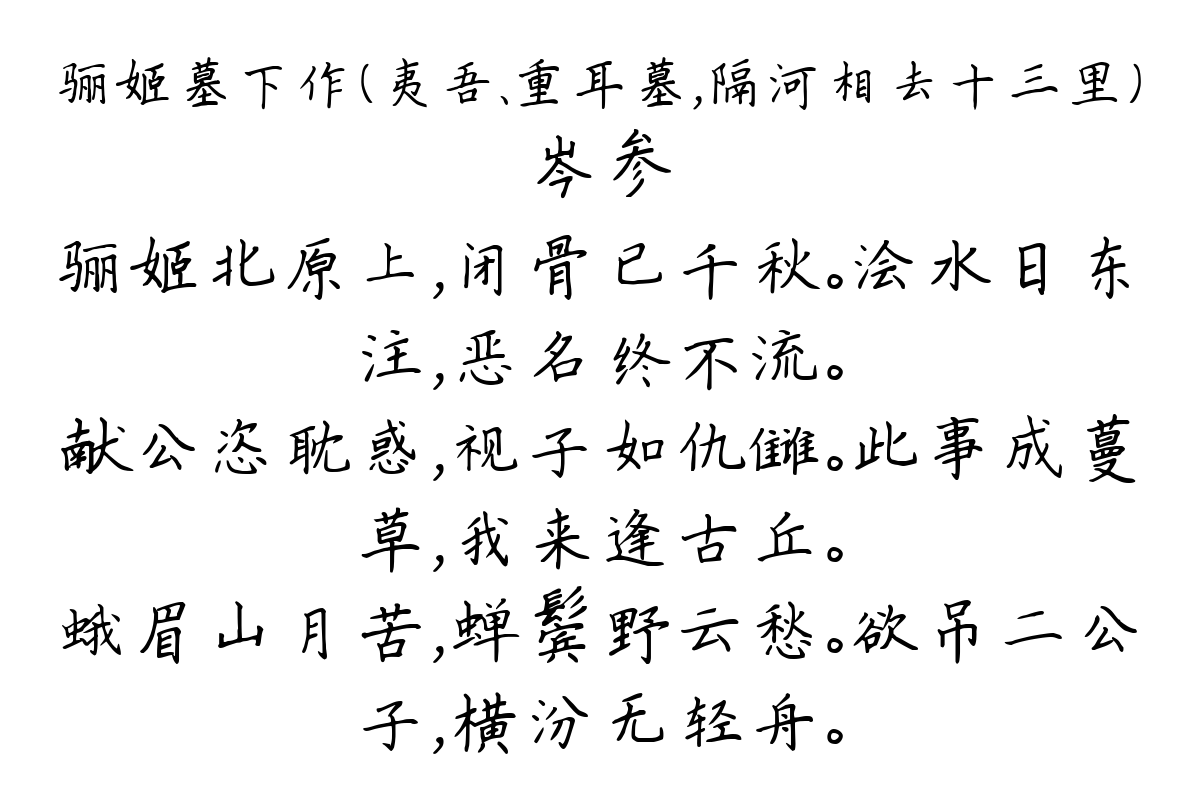 骊姬墓下作(夷吾、重耳墓,隔河相去十三里)
岑参
骊姬北原上,闭骨已千秋。浍水日东
注,恶名终不流。
献公恣耽惑,视子如仇雠。此事成蔓
草,我来逢古丘。
蛾眉山月苦,蝉鬓野云愁。欲吊二公
子,横汾无轻舟。